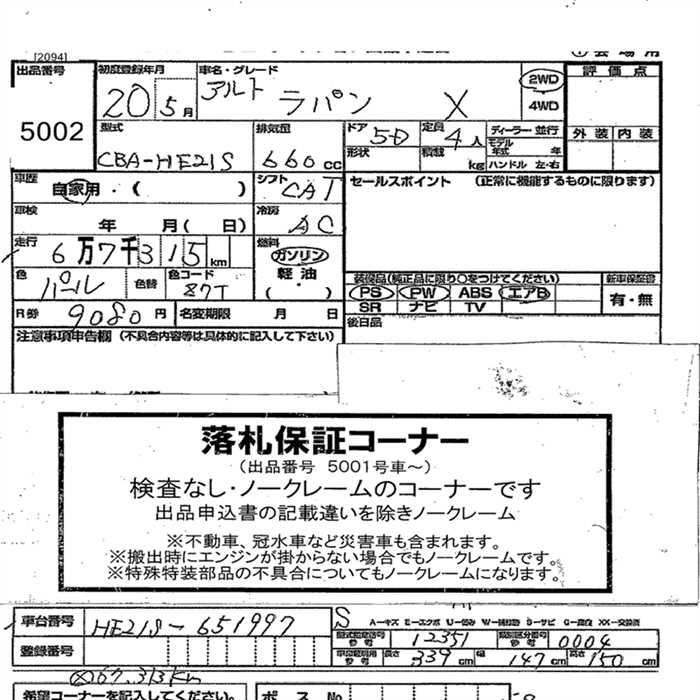 [2094]
出品番号 初度登録年月 車名・グレード 評価点
5002 20 5月 アルト ラパン X 2WD 4WD
外装 内装
型式 排気量 ドア 定員 ディーラー 並行
CBA-HE21S 660cc 5D 4人 モデル年式 年
形状 積載 kg ハンドル 左・右
車歴 シフト セールスポイント (正常に機能するものに限ります)
自家用・( ) CAT
車検 冷房
年 月( 日) AC
走行 燃料
6万7千315km ガソリン
色 色替 色コード 軽油
パール 87T ( ・ )
装備品(純正品に限り○をつけてください) 新車保証書
PS PW ABS エアB 有・無
SR ナビ TV
R券 9080円 名変期限 月 日 後日品
注意事項申告欄 (不具合内容等は具体的に記入して下さい)
落札保証コーナー
(出品番号 5001号車～)
検査なし・ノークレームのコーナーです
出品申込書の記載違いを除きノークレーム
※不動車、冠水車など災害車も含まれます。
※搬出時にエンジンが掛からない場合でもノークレームです。
※特殊特装部品の不具合についてもノークレームになります。
車台番号 HE21S-651997 S
A-キズ E-エクボ U-凹み W-補修跡 S-サビ C-腐食 XX-交換済
型式指定番号 参考 12351 類別区分番号 参考 0004
登録番号 車両諸元用 参考 長さ 339cm 幅 147cm 高さ 150cm
67,313km
希望コーナーを記入してください。 ボス No